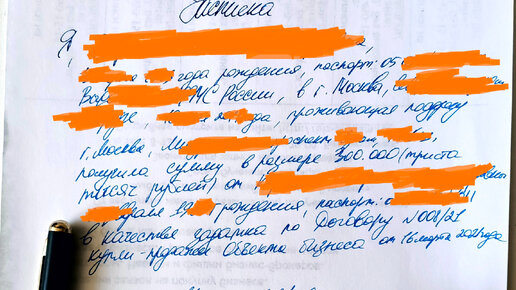 Расписка
Я
года рождения, паспорт: 05
России, в г. Москва,
проживающая по адресу
г. Москва,
получила сумму в размере 300.000 (триста
тысяч рублей) от
рождения, паспорт:
в качестве задатка по Договору №008/21
купли-продажи Объекта бизнеса от 16 марта 2021 года